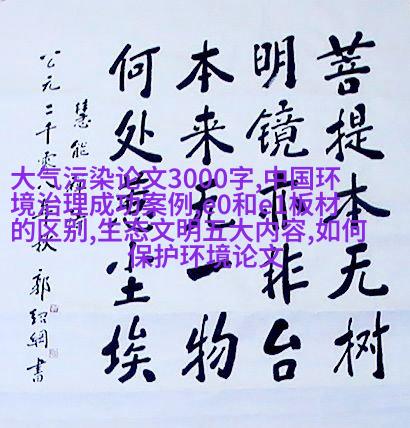 菩提本无树
明镜亦非台
本来无一物
何处惹尘埃
慧能
公元二千零八年秋 郭紹綱書
大气污染论文3000字,中国环
境治理成功案例,e0和e1板材
的区别,生态文明五大内容,如何
保护环境论文